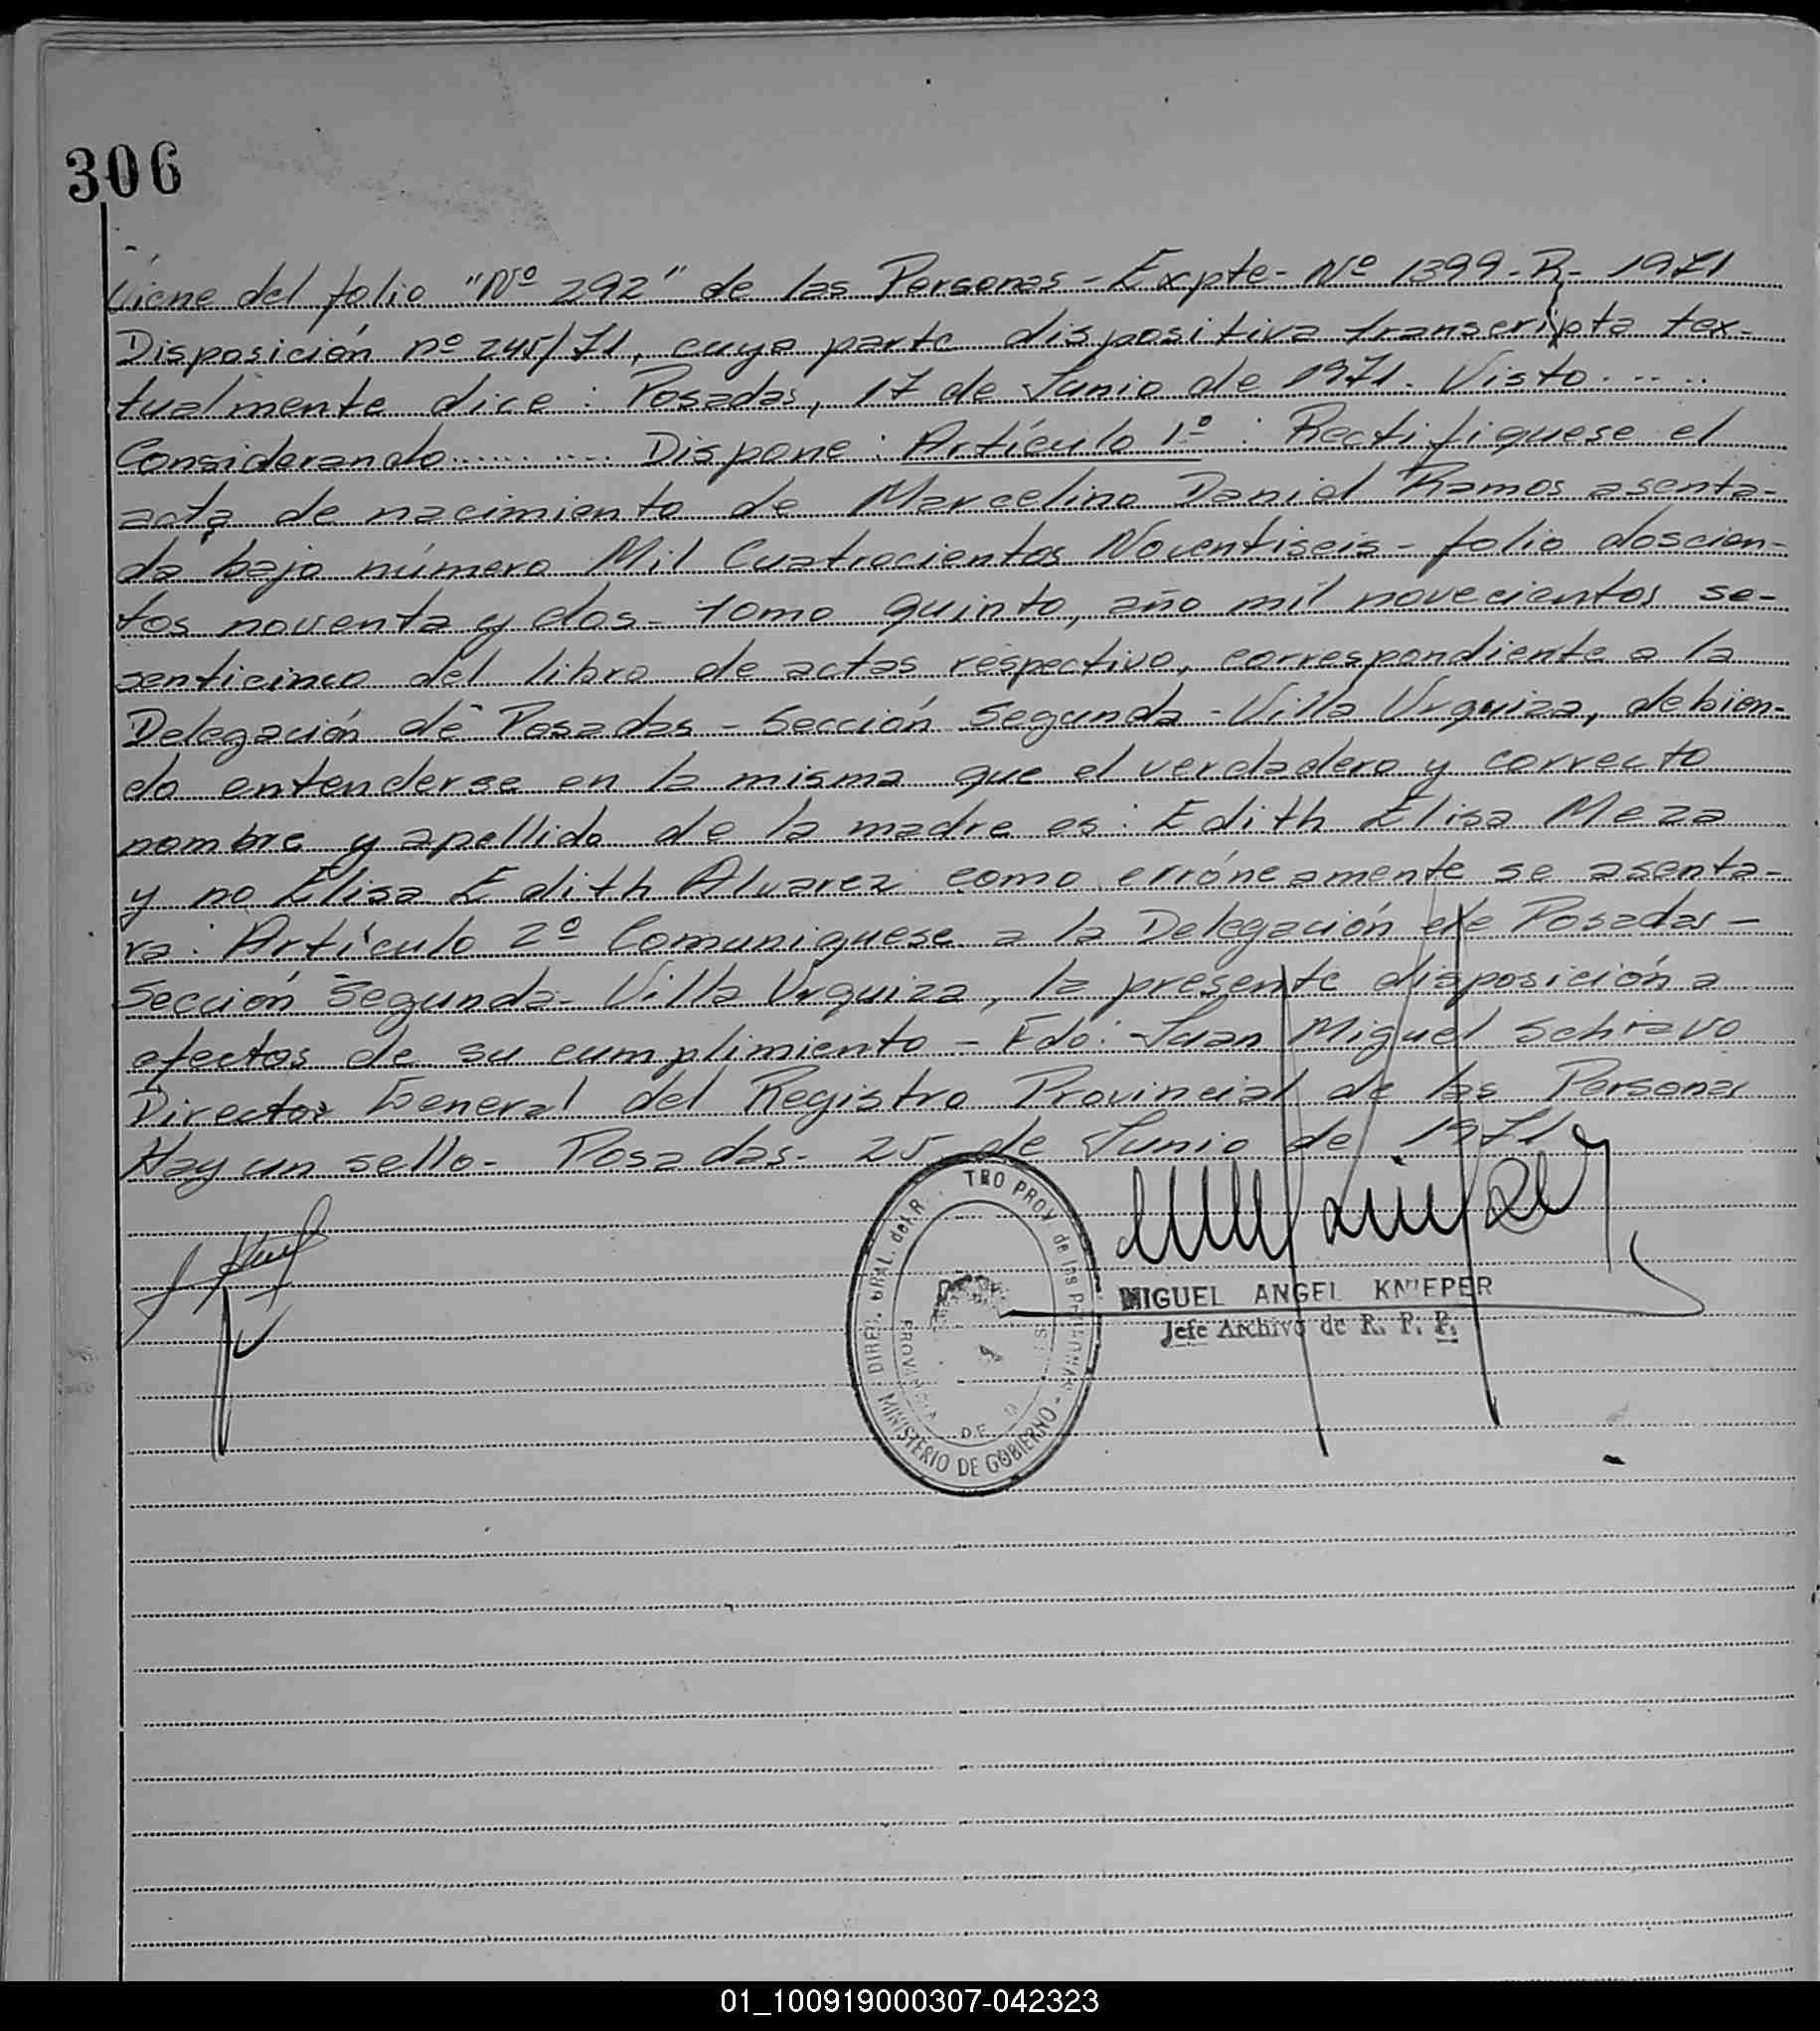 306
Viene del folio "Nº 292" de las Personas - Expte - Nº 1399 - R - 1971
Disposición nº 245/71, cuya parte dispositiva transcripta tex-
tualmente dice: Posadas, 17 de Junio de 1971. Visto.....
Considerando.......... Dispone: Artículo 1º: Rectifiquese el
acta de nacimiento de Marcelino Daniel Ramos asenta-
da bajo número Mil Cuatrocientos Noventiseis - folio doscien-
tos noventa y dos - tomo quinto, año mil novecientos se-
senticinco del libro de actas respectivo, correspondiente a la
Delegación de Posadas - Sección Segunda - Villa Urquiza, debien-
do entenderse en la misma que el verdadero y correcto
nombre y apellido de la madre es: Edith Elisa Meza
y no Elisa Edith Alvarez como erróneamente se asenta-
ra: Artículo 2º Comuniquese a la Delegación de Posadas -
Sección Segunda - Villa Urquiza, la presente disposición a
efectos de su cumplimiento - Fdo: Juan Miguel Schiavo
Director General del Registro Provincial de las Personas
Hay un sello - Posadas - 25 de Junio de 1971
DIREC. GRAL. del R TRO PROV de las PERSONAS
MINISTERIO DE GOBIERNO
MIGUEL ANGEL KNIEPER
Jefe Archivo de R. P. P.
01_100919000307-042323